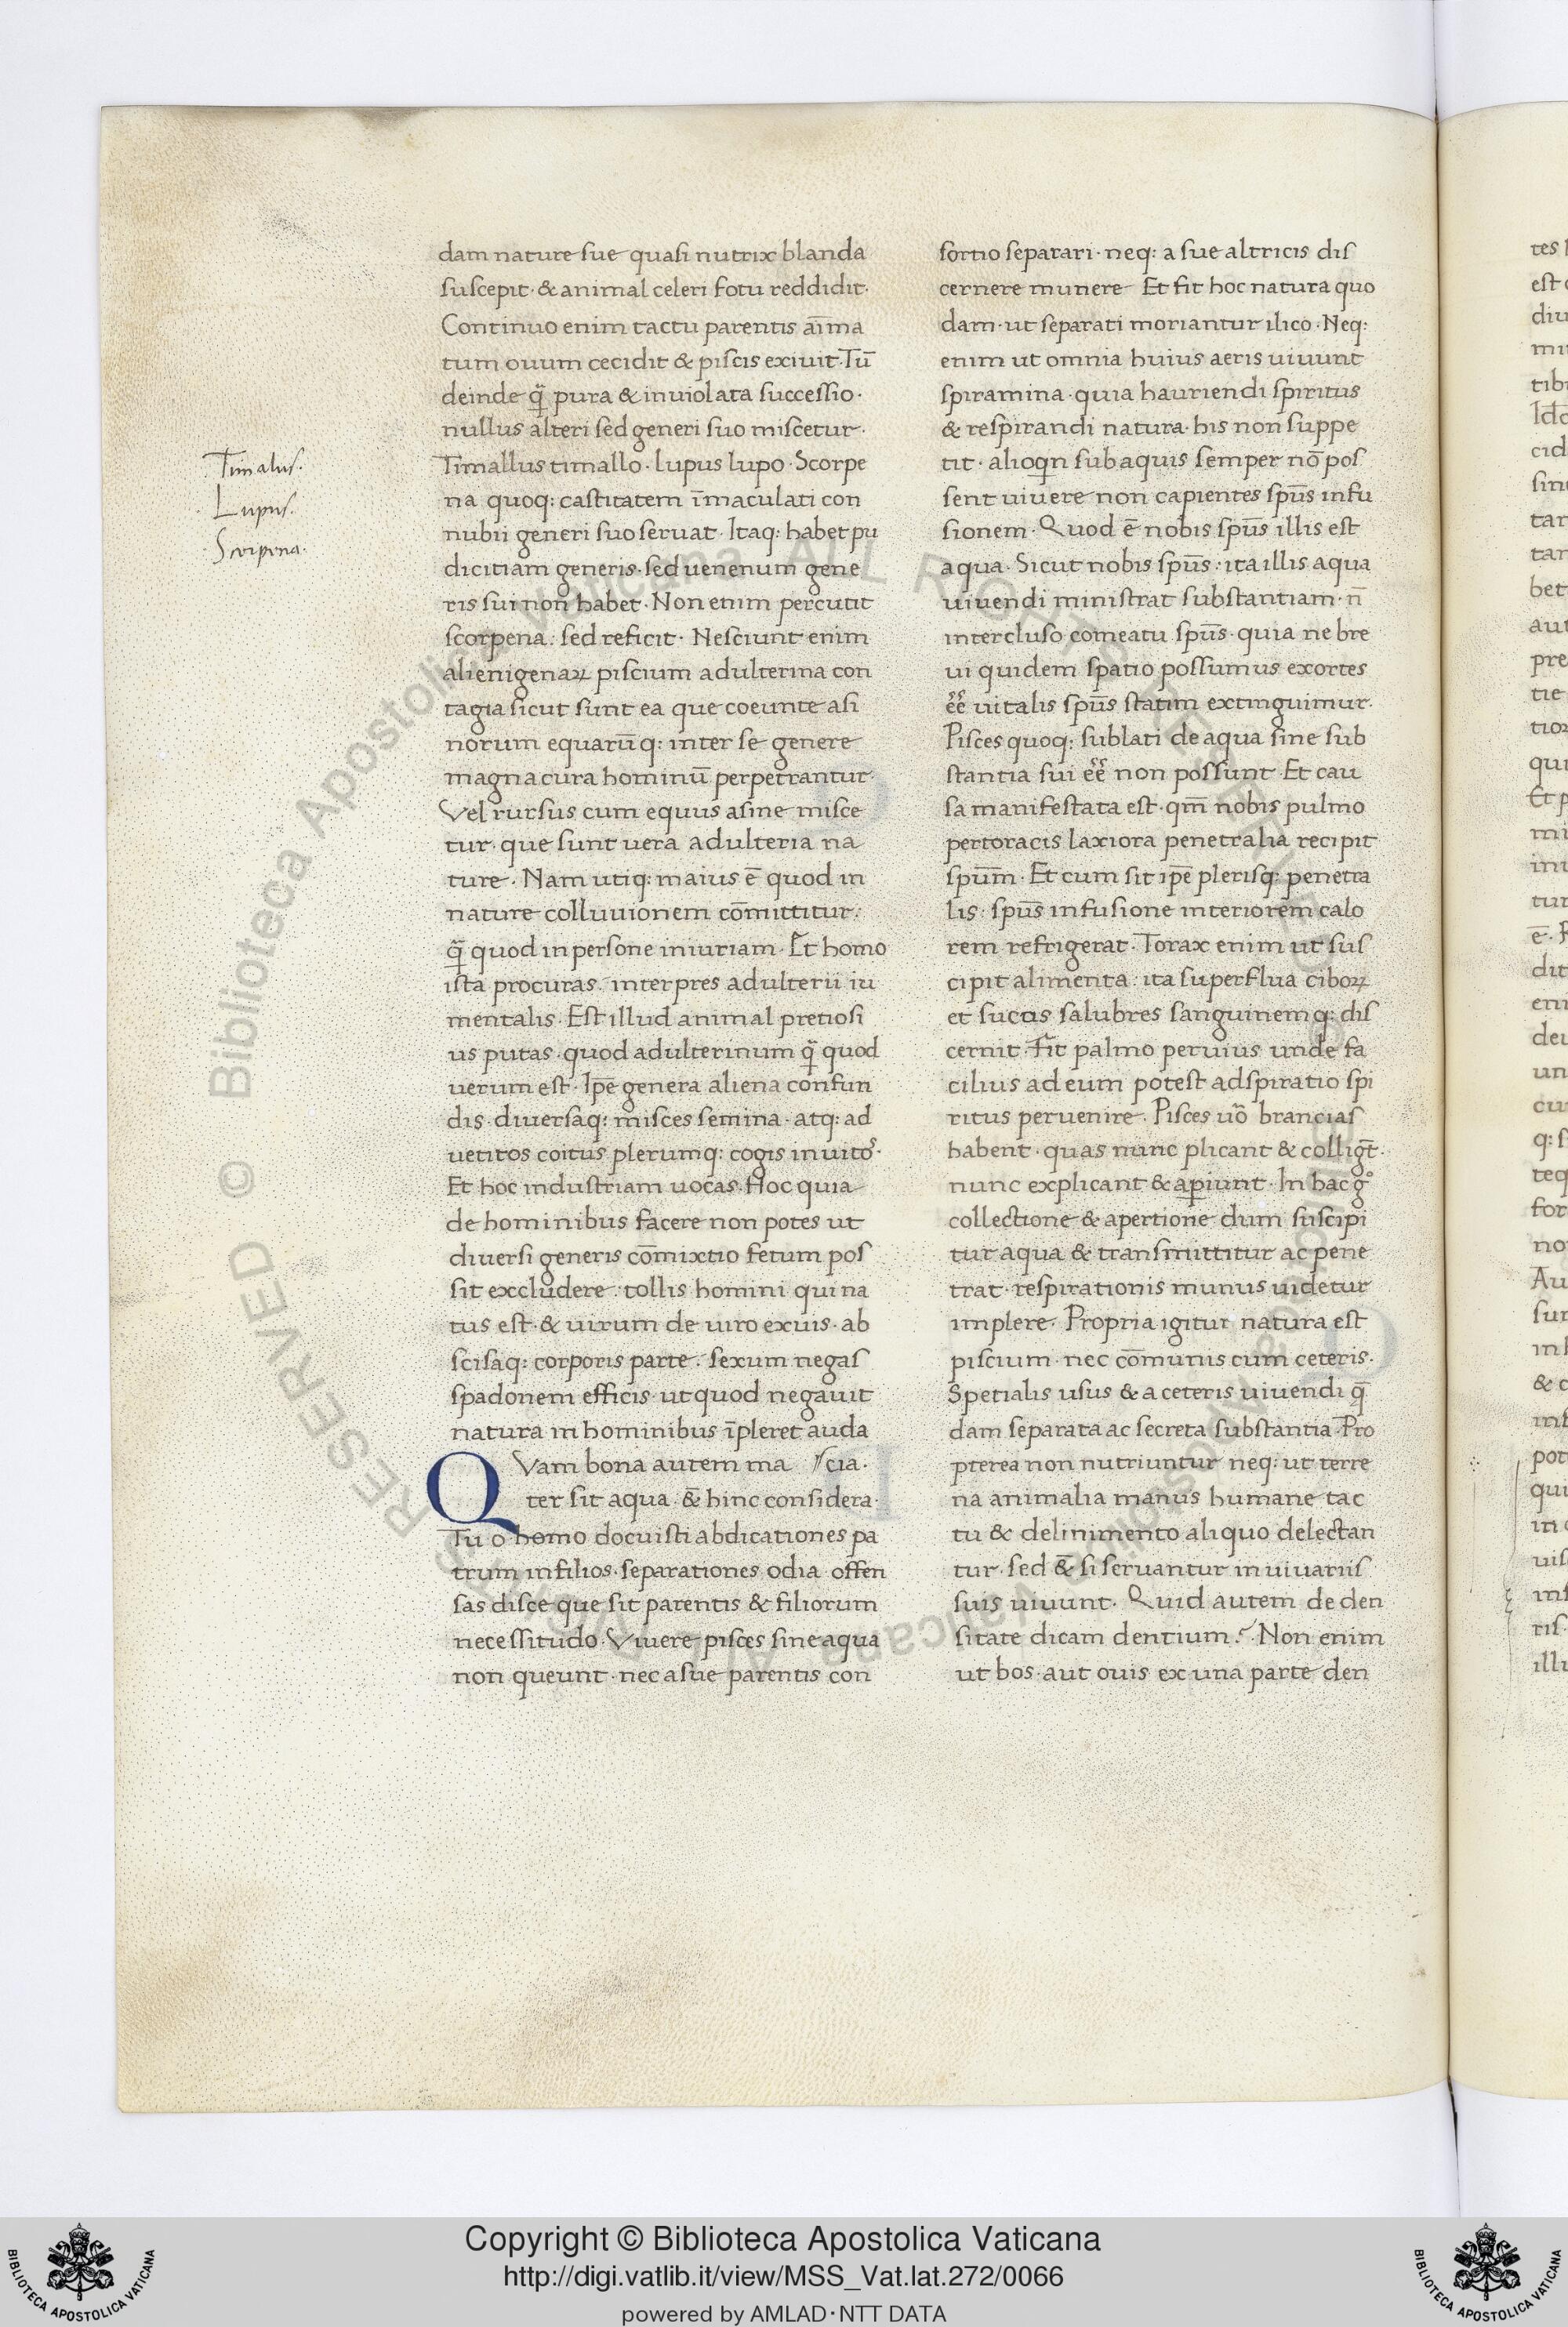 dam nature sue quasi nutrix blanda
suscepit · & animal celeri fotu reddidit ·
Continuo enim tactu parentis aīma
tum ouum cecidit & piscis exiuit · Tū
deinde q̄ pura & inuiolata successio ·
nullus alteri sed generi suo miscetur ·
Timallus timallo · lupus lupo · Scorpe
na quoq: castitatem īmaculati con
nubii generi suo seruat · Itaq: habet pu
dicitiam generis · sed uenenum gene
ris sui non habet · Non enim percutit
scorpena : sed reficit · Nesciunt enim
alienigenaꝝ piscium adulterina con
tagia sicut sunt ea que coeunte asi
norum equarūq: inter se genere
magna cura hominū perpetrantur ·
Vel rursus cum equus asine misce
tur · que sunt uera adulteria na
ture · Nam utiq: maius ē quod in
nature colluuionem cōmittitur :
q̄ quod in persone iniuriam · Et homo
ista procuras · interpres adulterii iu
mentalis · Est illud animal pretiosi
us putas · quod adulterinum q̄ quod
uerum est · Ipē genera aliena confun
dis · diuersaq: misces semina · atq: ad
uetitos coitus plerumq: cogis inuitos ·
Et hoc industriam uocas · Hoc quia
de hominibus facere non potes ut
diuersi generis cōmixtio fetum pos
sit exccludere : tollis homini qui na
tus est · & uirum de uiro exuis · ab
scisaq: corporis parte · sexum negas
spadonem efficis · ut quod negauit
natura in hominibus īpleret auda
QVam bona autem ma cia ·
ter sit aqua · & hinc considera ·
Tu o homo docuisti abdicationes pa
trum in filios · separationes odia offen
sas disce que sit parentis & filiorum
necessitudo · Viuere pisces sine aqua
non queunt · nec a sue parentis con
Timalus.
Lupus.
Scorpena.
sortio separari · neq: a sue altricis dis
cernere munere Et fit hoc natura quo
dam · ut separati moriantur ilico · Neq:
enim ut omnia huius aeris uiuunt
spiramina · quia hauriendi spiritus
& respirandi natura · his non suppe
tit · alioqn sub aquis semper nō pos
sent uiuere non capientes spūs infu
sionem · Quod ē nobis spūs illis est
aqua · Sicut nobis spūs : ita illis aqua
uiuendi ministrat substantiam · n̄
intercluso comeatu spūs · quia ne bre
ui quidem spatio possumus exortes
eē uitalis spūs statim extinguimur ·
Pisces quoq: sublati de aqua sine sub
stantia sui eē non possunt · Et cau
sa manifestata est · qm̄ nobis pulmo
per toracis laxiora penetralia recipit
spūm · Et cum sit ipē plerisq: penetra
lis : spūs infusione interiorem calo
rem refrigerat · Torax enim ut sus
cipit alimenta : ita superflua ciboꝝ
et succis salubres sanguinemq: dis
cernit · Fit palmo peruius unde fa
cilius ad eum potest adspiratio spi
ritus peruenire · Pisces uō brancias
habent · quas nunc plicant & colligt̄ ·
nunc explicant & apiunt · In hac g°
collectione & apertione dum suscipi
tur aqua & transmittitur ac pene
trat · respirationis munus uidetur
implere · Propria igitur natura est
piscium · nec cōmunis cum ceteris ·
Spetialis usus & a ceteris uiuendi q̄
dam separata ac secreta substantia · Pro
pterea non nutriuntur neq: ut terre
na animalia manus humane tac
tu & delinimento aliquo delectan
tur · sed & si seruantur in uiuariis
suis uiuunt · Quid autem de den
sitate dicam dentium? · Non enim
ut bos · aut ouis ex una parte den
Copyright © Biblioteca Apostolica Vaticana
http://digi.vatlib.it/view/MSS_Vat.lat.272/0066
powered by AMLAD · NTT DATA
BIBLIOTECA APOSTOLICA VATICANA
BIBLIOTECA APOSTOLICA VATICANA